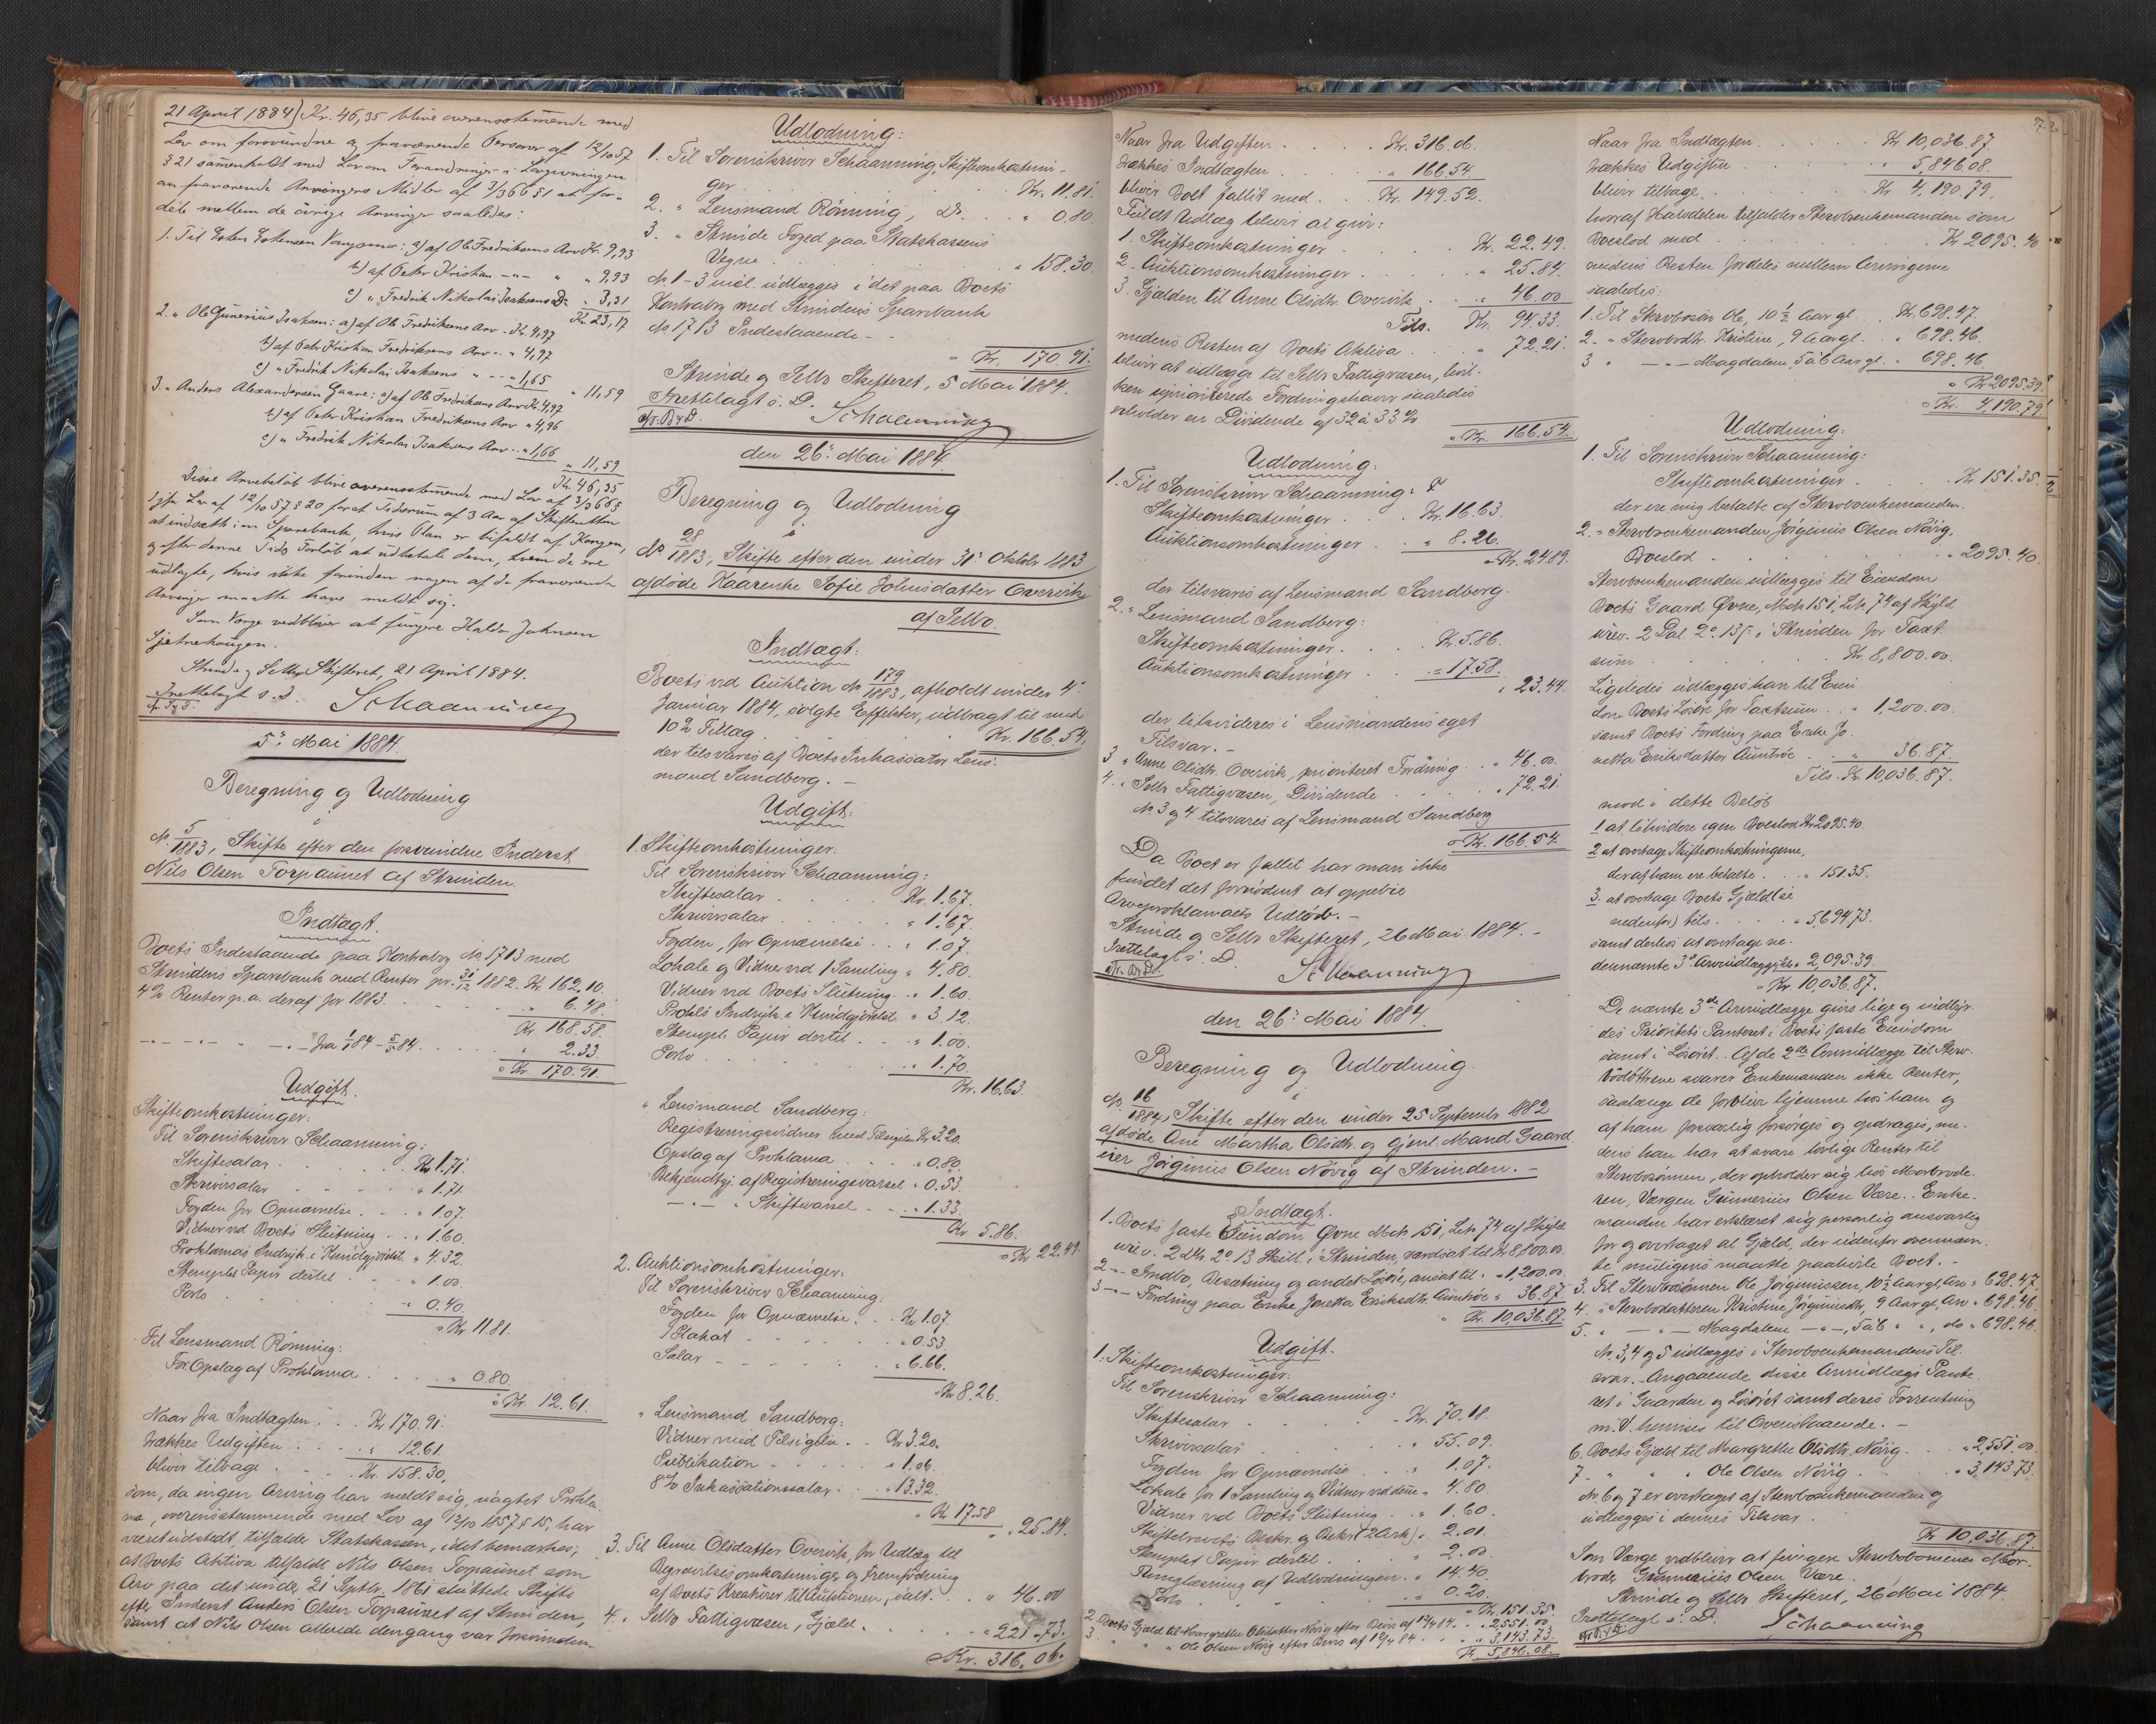 21 April 1884) Kr. 46,35 blive overensstemende med
Lov om forsvundne og fraværende Personer af 12/10 57
§ 21 samenholdt med Lov om Forandringer i Lovgivningen
an fraværende Arvingers Midler af 3/3 66 § 1 at for-
dele mellem de øvrige Arvinger saaledes:
1. Til Esten Estensen Vangsmo: a) af Ole Fredriksens Arv Kr. 9,93
b) af Peter Kristian -"- " " 9,93
c) " Fredrik Nikolai Isaksens Do " 3,31
Kr. 23,17
2. " Ole Gunerius Isaksen: a) af Ole Fredriksens Arv . Kr. 4,97
b) af Peter Kristian Fredriksens Arv - " 4,97
c) " Fredrik Nikolai Isaksens " - - " 1,65
" 11,59
3. " Anders Alexandersen Gaare: a) af Ole Fredriksens Arv Kr. 4,97
b) af Peter Kristian Fredriksens Arv " 4,96
c) " Fredrik Nikolai Isaksens Arv - " 1,66
" 11,59
Kr. 46,35
Disse Arvebeløb blive overensstemende med Lov af 3/3 66 §
1 jfr. Lov af 12/10 57 § 20 for et Tidsrum af 3 Aar af Skifteretten
at indsætte i en Sparebank, hvis Plan er bifaldt af Kongen,
og efter denne Tids Forløb at udbetale dem, hvem de ere
udlagte, hvis ikke forinden nogen af de fraværende
Arvinger maatte have meldt sig.
Som Værge vedbliver at fungere Haldo Johnsen
Sjetnehaugen.
Strinde og Selbo Skifteret, 21 April 1884.
Fremlagt s. D. Schaanning
5te Mai 1884.
Beregning og Udlodning
i
No 5/1883, Skifte efter den forsvundne Inderst
Nils Olsen Torpaunet af Strinden.
Indtægt.
Boets Indestaaende paa Kontrabog No 1713 med
Strindens Sparebank med Renter pr. 31/12 1882. Kr. 162.10.
4 % Renter p. a. deraf for 1883. . . . " 6.48.
Kr 168.58.
-"- -"- - " - fra 1/1 84 - 5/5 84. . . . " 2.33.
= Kr 170.91.
Udgift.
Skifteomkostninger:
Til Sorenskriver Schaanning:
Skiftesalar . . . . . Kr 1.71.
Skriversalar - - - " 1.71.
Fogden for Opnævnelse . . " 1.07.
Vidner ved Boets Slutning . . " 1.60.
Proklamas Indryk. i Kundgjørelst. " 4.32.
Stemplet Papir dertil . . " 1.00.
Porto . . . . " 0.40.
= Kr 11.81.
Til Lensmand Rønning:
For Opslag af Proklama . . . . " 0.80.
= Kr. 12.61.
Naar fra Indtægten . . . Kr 170.91.
trækkes Udgiften . . . . " 12.61.
bliver tilbage . . . . Kr. 158.30,
som, da ingen Arving har meldt sig, uagtet Prokla-
ma, overensstemmende med Lov af 12/10 1857 § 15, har
været udstedt, tilfalder Statskassen, idet bemærkes,
at Boets Aktiva tilfaldt Nils Olsen Torpaunet som
Arv paa det under 21 Septbr. 1861 sluttede Skifte
efter Inderst Anders Olsen Torpaunet af Strinden,
samt at Nils Olsen allerede dengang var forsvunden
Udlodning:
1. Til Sorenskriver Schaanning, Skifteomkostnin-
ger . . . . . Kr. 11.81.
2. " Lensmand Rønning, Do. . . . " 0.80.
3. " Strinde Foged paa Statskassens
Vegne . . . . . " 158.30.
No 1-3 incl. udlægges i det paa Boets
Kontrabog med Strindens Sparebank
No 1713 Indestaaende - -
= Kr. 170.91.
Strinde og Selbo Skifteret, 5 Mai 1884.
Fremlagt s. D. Schaanning
den 26de Mai 1884.
Beregning og Udlodning
i
No 28/1883, Skifte efter den under 31te Oktobr 1883
afdøde Kaarenke Sofie Johnsdatter Overvik
af Selbo.
Indtægt:
Boets ved Auktion No 179/1883, afholdt under 4de
Januar 1884, solgte Effekter, udbragt til med
10 % Tillæg . . . . . Kr. 166.54,
der tilsvares af Boets Inkassator Lens-
mand Sandberg. -
Udgift:
1. Skifteomkostninger:
Til Sorenskriver Schaanning:
Skiftesalar . . . . Kr. 1.67.
Skriversalar . . . . " 1.67.
Fogden, for Opnævnelse . . " 1.07.
Lokale og Vidner ved 1 Samling " 4.80.
Vidner ved Boets Slutning . . " 1.60.
Prokls Indryk. i Kundgjørelst. " 3.12.
Stempl. Papir dertil . . " 1.00.
Porto . . . . . " 1.70.
Kr. 16.63.
" Lensmand Sandberg:
Registreringsvidner med Tilsigelse Kr 3.20.
Opslag af Proklama . . . . " 0.80.
Bekjendtgj. af Registreringsvarsel " 0.53.
-"- " Skiftevarsel . . . " 1.33.
Kr 5.86.
= Kr 22.49.
2. Auktionsomkostninger:
Til Sorenskriver Schaanning:
Fogden for Opnævnelse . . Kr 1.07.
Plakat . . . . . " 0.53.
Salær - - - . " 6.66.
= Kr 8.26.
" Lensmand Sandberg:
Vidner med Tilsigelse . . Kr 3.20.
Publikation . . . . " 1.06.
8 % Inkassationssalar . . " 13.32.
= Kr 17.58
" 25.84.
3. Til Anne Olsdatter Overvik, for Udlæg til
Begravelsesomkostninger og Fremførsning
af Boets Kreaturer til Auktionen, ialt . . . " 46.00
4. " Selbo Fattigvæsen, Gjæld . . . . . " 221.73.
Kr. 316.06.
Naar fra Udgiften . . . . Kr. 316.06.
trækkes Indtægten . . . . " 166.54
bliver Boet fallit med . . . Kr. 149.52.
Fuldt Udlæg bliver at give:
1. Skifteomkostninger . . . Kr. 22.49.
2. Auktionsomkostninger . . . . " 25.84.
3. Gjælden til Anne Olsdtr. Overvik . . " 46.00
Tils. Kr. 94.33.
medens Resten af Boets Aktiva . . . " 72.21.
bliver at udlægge til Selbo Fattigvæsen, hvil-
ken uprioriterede Fordringshaver saaledes
erholder en Dividende af 32 à 33 %
= Kr. 166.54.
Udlodning:
1. Til Sorenskriver Schaanning:
Skifteomkostninger . . . Kr. 16.63.
Auktionsomkostninger . . " 8.26.
= Kr. 24.89.
der tilsvares af Lensmand Sandberg.
2. " Lensmand Sandberg:
Skifteomkostninger . . . . Kr 5.86.
Auktionsomkostninger . . = 17.58.
" 23.44.
der likvideres i Lensmandens eget
Tilsvar. -
3 " Anne Olsdtr. Overvik, prioriteret Fordring . . " 46.00.
4. " Selbo Fattigvæsen, Dividende . . . . " 72.21.
No 3 og 4 tilsvares af Lensmand Sandberg
= Kr. 166.54.
Da Boet er fallit har man ikke
fundet det fornødent at oppebie
Arveproklamaets Udløb. -
Strinde og Selbo Skifteret, 26 Mai 1884. -
Fremlagt s. D. Schaanning
den 26de Mai 1884.
Beregning og Udlodning
i
No 16/1884, Skifte efter den under 25 Septembr 1882
afdøde Ane Martha Olsdtr. og gjenl. Mand Gaard-
eier Jørginus Olsen Növig af Strinden. -
Indtægt.
1. Boets faste Eiendom Øvne Mtr 151, Løb. 74 af Skyld
urev. 2 Dlr. 2 ort 13 Skill. i Strinden, værdsat til Kr 8,800.00.
2 -"- Indbo, Besætning og andet Løsøre, ansat til . " 1,200.00.
3 -"- Fordring paa Enke Jonetta Eriksdtr. Auntröe " 36.87.
" Kr. 10,036.87.
Udgift.
1. Skifteomkostninger:
Til Sorenskriver Schaanning:
Skiftesalar . . . . Kr. 70.18.
Skriversalar . . . . " 55.09.
Fogden for Opnævnelse . . . " 1.07.
Lokale for 1 Samling og Vidner ved denne " 4.80.
Vidner ved Boets Slutning . . " 1.60.
Skifterettens Beskr. og Bekr. (2 Ark) " 2.01.
Stemplet Papir dertil . . . " 2.00.
Thinglæsning af Udlodningen . " 14.40.
Porto " " " " 0.20.
= Kr. 151.35.
2. Boets Gjæld til Margrethe Olsdatter Növig efter Bevis af 12/4 84 . . " 2,551.00.
3 " " " Ole Olsen Növig efter Bevis af 12/4 84 . . . " 3,143.73.
Kr 5,846.08.
Naar fra Indtægten . . . . Kr 10,036.87.
trækkes Udgiften . . . . " 5,846.08.
bliver tilbage . . . . Kr 4,190.79,
hvoraf Halvdelen tilfalder Stervboenkemanden som
Boeslod med . . . . . Kr 2095.40
medens Resten fordeles mellem Arvingerne
saaledes:
1. Til Stervbosøn Ole, 10 1/2 Aar gl . . Kr. 698.47.
2. " Stervbodtr. Kristine, 9 Aar gl. . " 698.46.
3 " -"- Magdalene, 5 à 6 Aar gl. " 698.46
= Kr 2095.39.
= Kr. 4,190.79.
Udlodning:
1. Til Sorenskriver Schaanning:
Skifteomkostninger . . . . Kr 151.35.
der ere mig betalte af Stervboenkemanden.
2. " Stervboenkemanden Jørginus Olsen Növig,
Boeslod . . . . . . " 2095.40.
Stervboenkemanden udlægges til Eiendom
Boets Gaard Øvne, Mtr 151, Løb. 74 af Skyld
urev. 2 Dal. 2 ort 13 ß. i Strinden for Taxt-
sum . . . . . Kr. 8,800.00.
Ligeledes udlægges han til Eien-
dom Boets Løsøre for Taxtsum . . " 1,200.00.
samt Boets Fordring paa Enke Jo-
netta Eriksdatter Auntröe . . " 36.87.
Tils. Kr. 10,036.87.
mod i dette Beløb
1 at likvidere egen Boeslod Kr 2095.40.
2 at overtage Skifteomkostningerne,
der af ham ere betalte . . . " 151.35.
3. at overtage Boets Gjæld (se
nedenfor) tils. . . . . " 5,694.73.
samt derhos at overtage ne-
dennævnte 3de Arveudlæg, tils. " 2,095.39.
= Kr. 10,036.87.
De nævnte 3de Arveudlægge gives lige og indbyr-
des Prioritets Panteret i Boets faste Eiendom
samt i Løsøret. Af de 2de Arveudlægge til Sterv-
bodøttrene svarer Enkemanden ikke Renter,
saalænge de forblive hjemme hos ham og
af ham forsvarlig forsørges og opdrages, me-
dens han har at svare lovlige Renter til
Stervbosønnen, der opholder sig hos Morbrode-
ren, Værgen Gunnerius Olsen Være. . Enke-
manden har erklæret sig personlig ansvarlig
for og overtaget al Gjæld, der udenfor ovennævn-
te muligens maatte paahvile Boet. -
3. Til Stervbosønnen Ole Jørginussen, 10 1/2 Aar gl, Arv " 698.47
4. " Stervbodatteren Kristine Jørginusdtr, 9 Aar gl, Arv " 698.46.
5. " -"- Magdalene -"-, 5 à 6 " " , do " 698.46.
No. 3, 4 og 5 udlægges i Stervboenkemandens Til-
svar. - Angaaende disse Arveudlægs Pante-
ret i Gaarden og Løsøret samt deres Forrentning
m. V. henvises til Ovenstaaende. -
6. Boets Gjæld til Margrethe Olsdtr. Növig . . . " 2,551.00.
7. " " " Ole Olsen Növig . . . . " 3,143.73.
No. 6 og 7 er overtaget af Stervboenkemanden og
udlægges i dennes Tilsvar.
Kr 10,036.87.
Som Værge vedbliver at fungere Stervbobørnenes Mor-
brode Gunnerius Olsen Være.
Strinde og Selbo Skifteret, 26 Mai 1884.
Fremlagt s. D. Schaanning